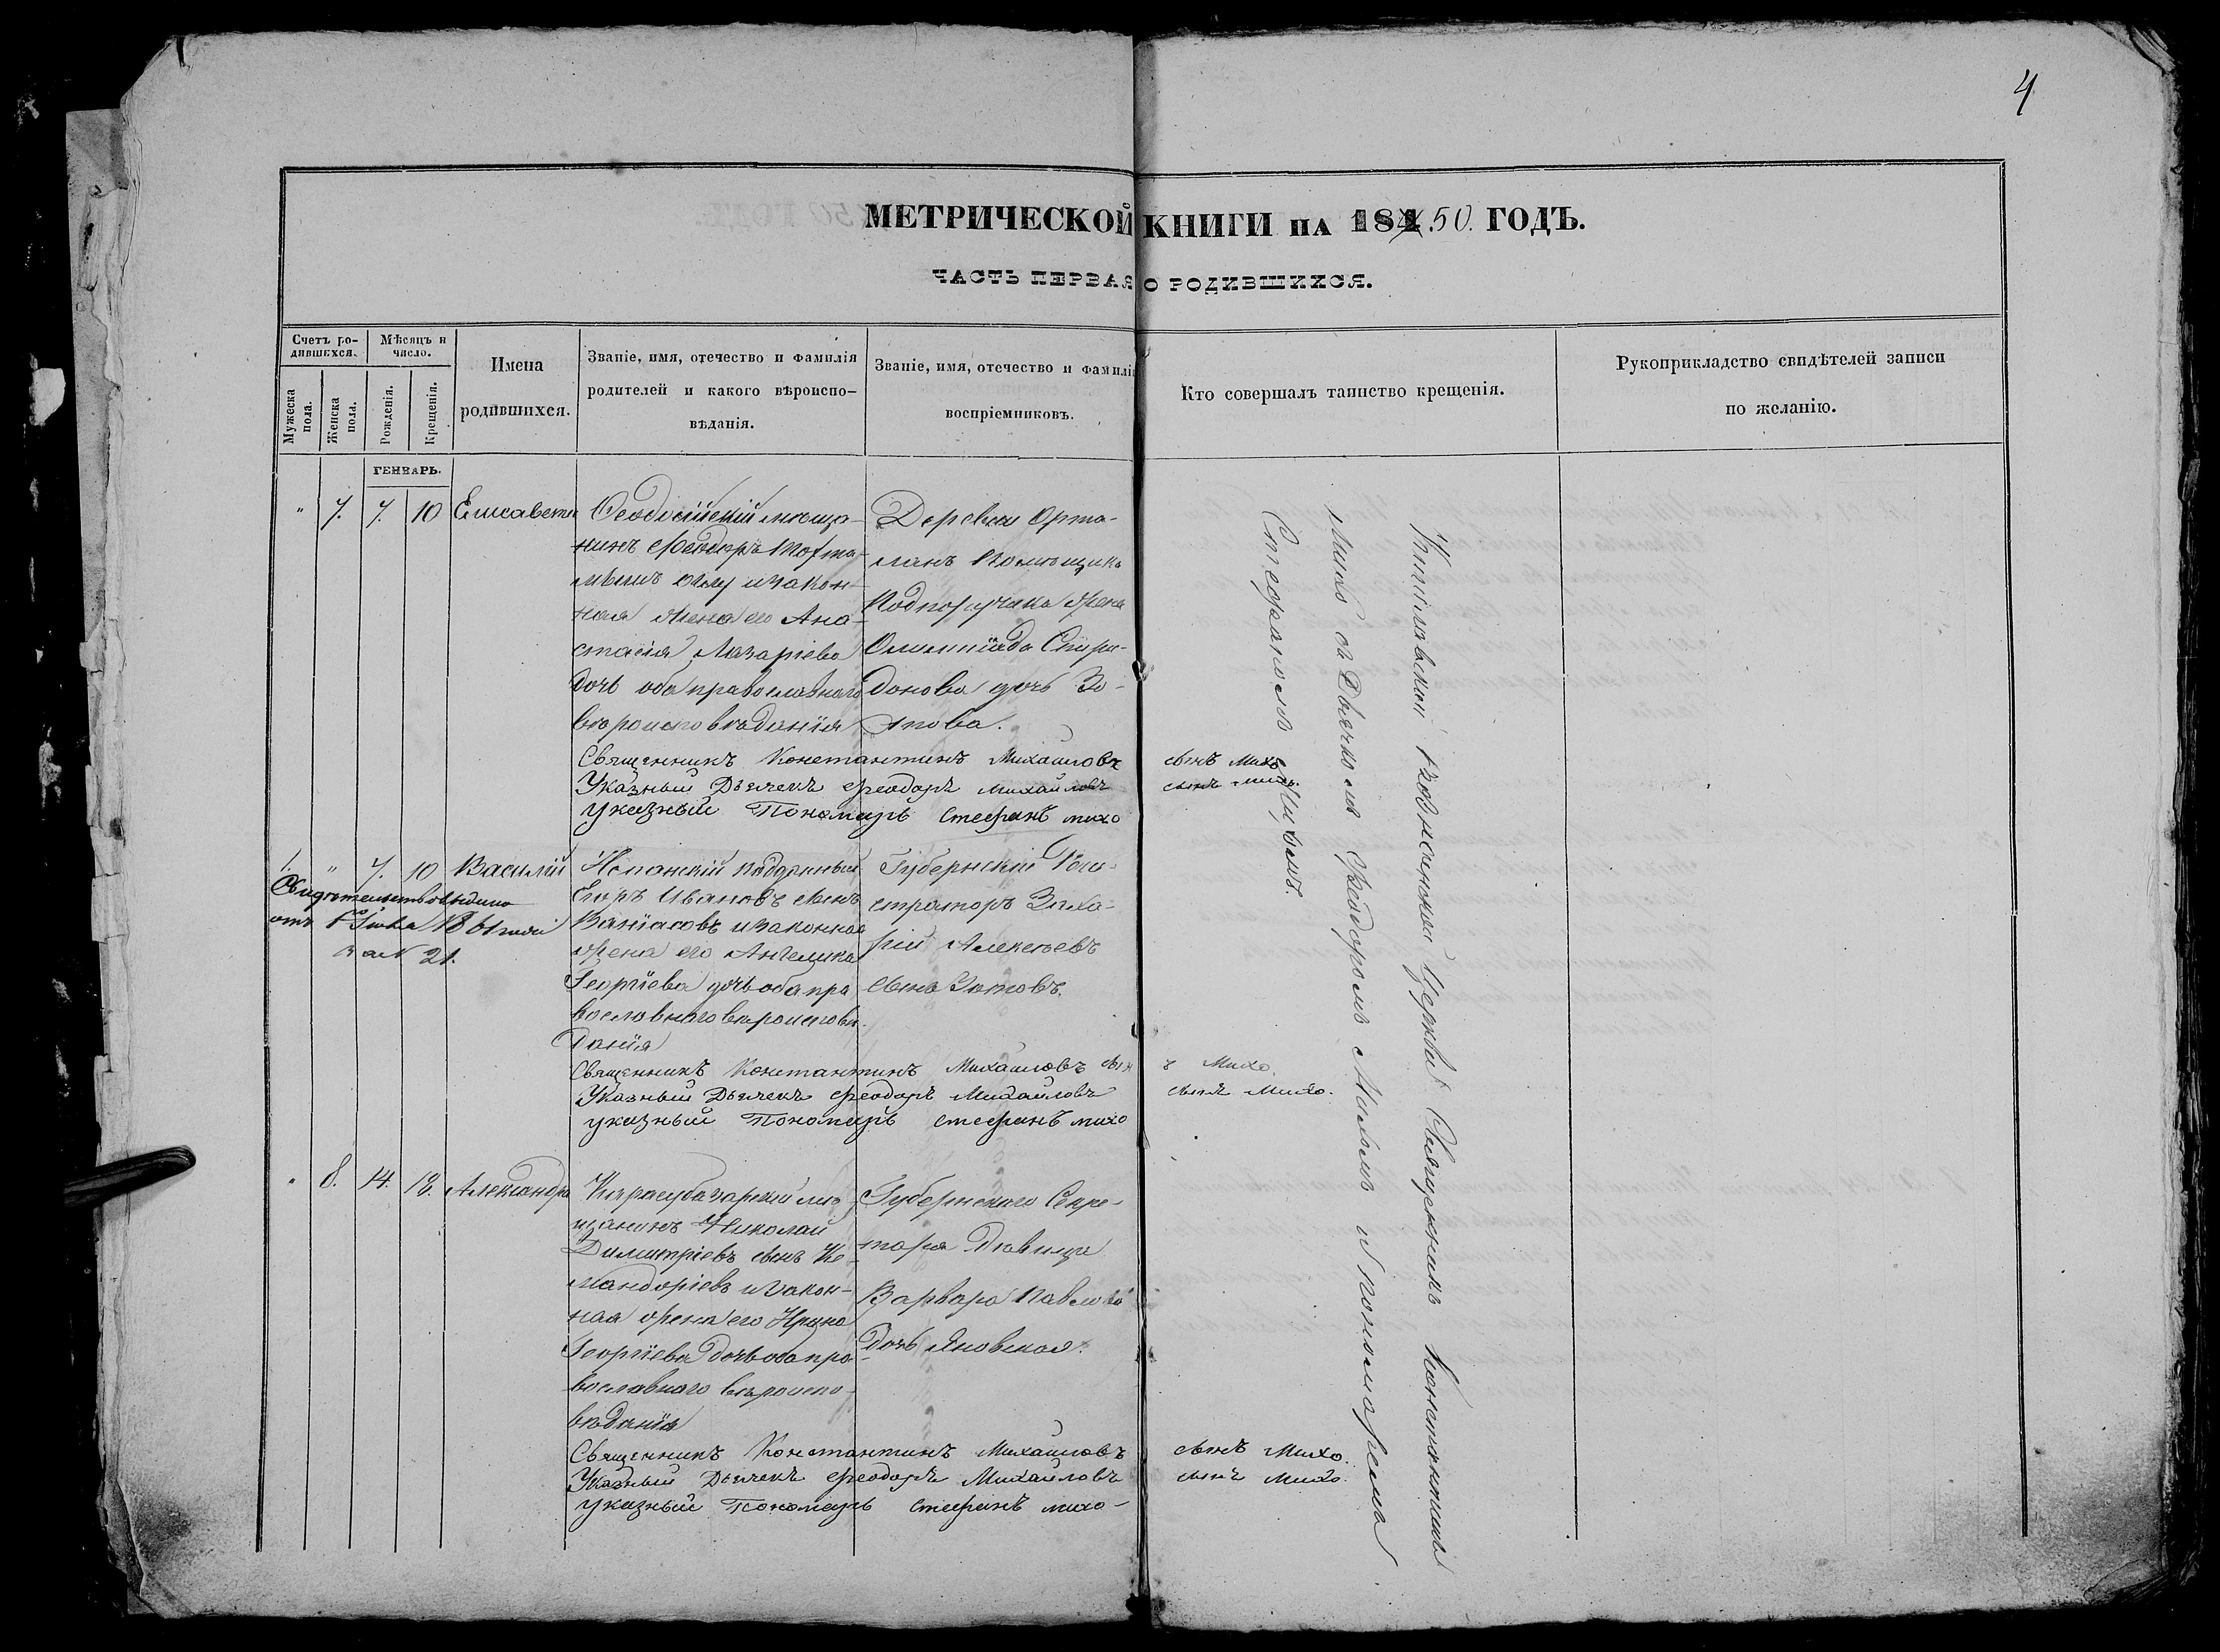 4
МЕТРИЧЕСКОЙ КНИГИ на 184 50. ГОДЪ.
ЧАСТЬ ПЕРВАЯ О РОДИВШИХСЯ.
Счетъ ро-
дившихся.
Мѣсяцъ и
число.
Мужеска
пола.
Женска
пола.
Рожденія.
Крещенія.
Имена
родившихся.
Званіе, имя, отечество и фамилія
родителей и какого вѣроиспо-
вѣданія.
Званіе, имя, отечество и фамилі
воспріемниковъ.
Кто совершалъ таинство крещенія.
Рукоприкладство свидѣтелей записи
по желанію.
ГЕНВАРЬ.
" 7. 7. 10 Елисавета
Ѳеодосійскій мѣща-
нинъ Феодоръ
оглу и закон-
ная жена его Ана-
стасія Лазаріева
дочь оба православнаго
вѣроисповѣданія
Деревни Орта-
ланъ помѣщика
Подпоручика жена
Олимпіада Спири-
донова дочь Зо-
това.
Священникъ Константинъ Михаиловъ сынъ Михо.
Указный Дьячекъ Феодоръ Михайловъ сынъ Михо.
указный Пономарь Стефанъ михо
1. " 7. 10 Василій
Свидѣтельство выдано
отъ 1861 года
за N 21.
Испанскій подданный
Егоръ Ивановъ сынъ
и законная
жена его Ангелика
Георгіева дочь оба пра
вославнаго вѣроисповѣ
данія
Губернскій Реги-
страторъ Заха-
рій Алексѣевъ
сынъ Зотовъ.
Священникъ Константинъ Михаиловъ сынъ Михо.
Указный Дьячекъ Феодоръ Михайловъ сынъ Михо.
указный Пономарь стефанъ михо
" 8. 14. 18. Александра
Карасубазарскій мѣ
щанинъ Николай
Димитріевъ сынъ
и закон-
ная жена его Ирина
Георгіева дочь оба пра-
вославнаго вѣроиспо-
вѣданія
Губернскаго Секре-
таря дѣвица
Варвара Павлова
дочь Яновская.
Священникъ Константинъ Михаиловъ сынъ Михо.
Указный Дьячекъ Феодоръ Михайловъ сынъ Михо.
указный Пономарь стефанъ михо-
церкви Священникъ Константинъ
Михо съ Дьячкомъ Феодоромъ Михо и пономаремъ
Стефаномъ Михомъ.